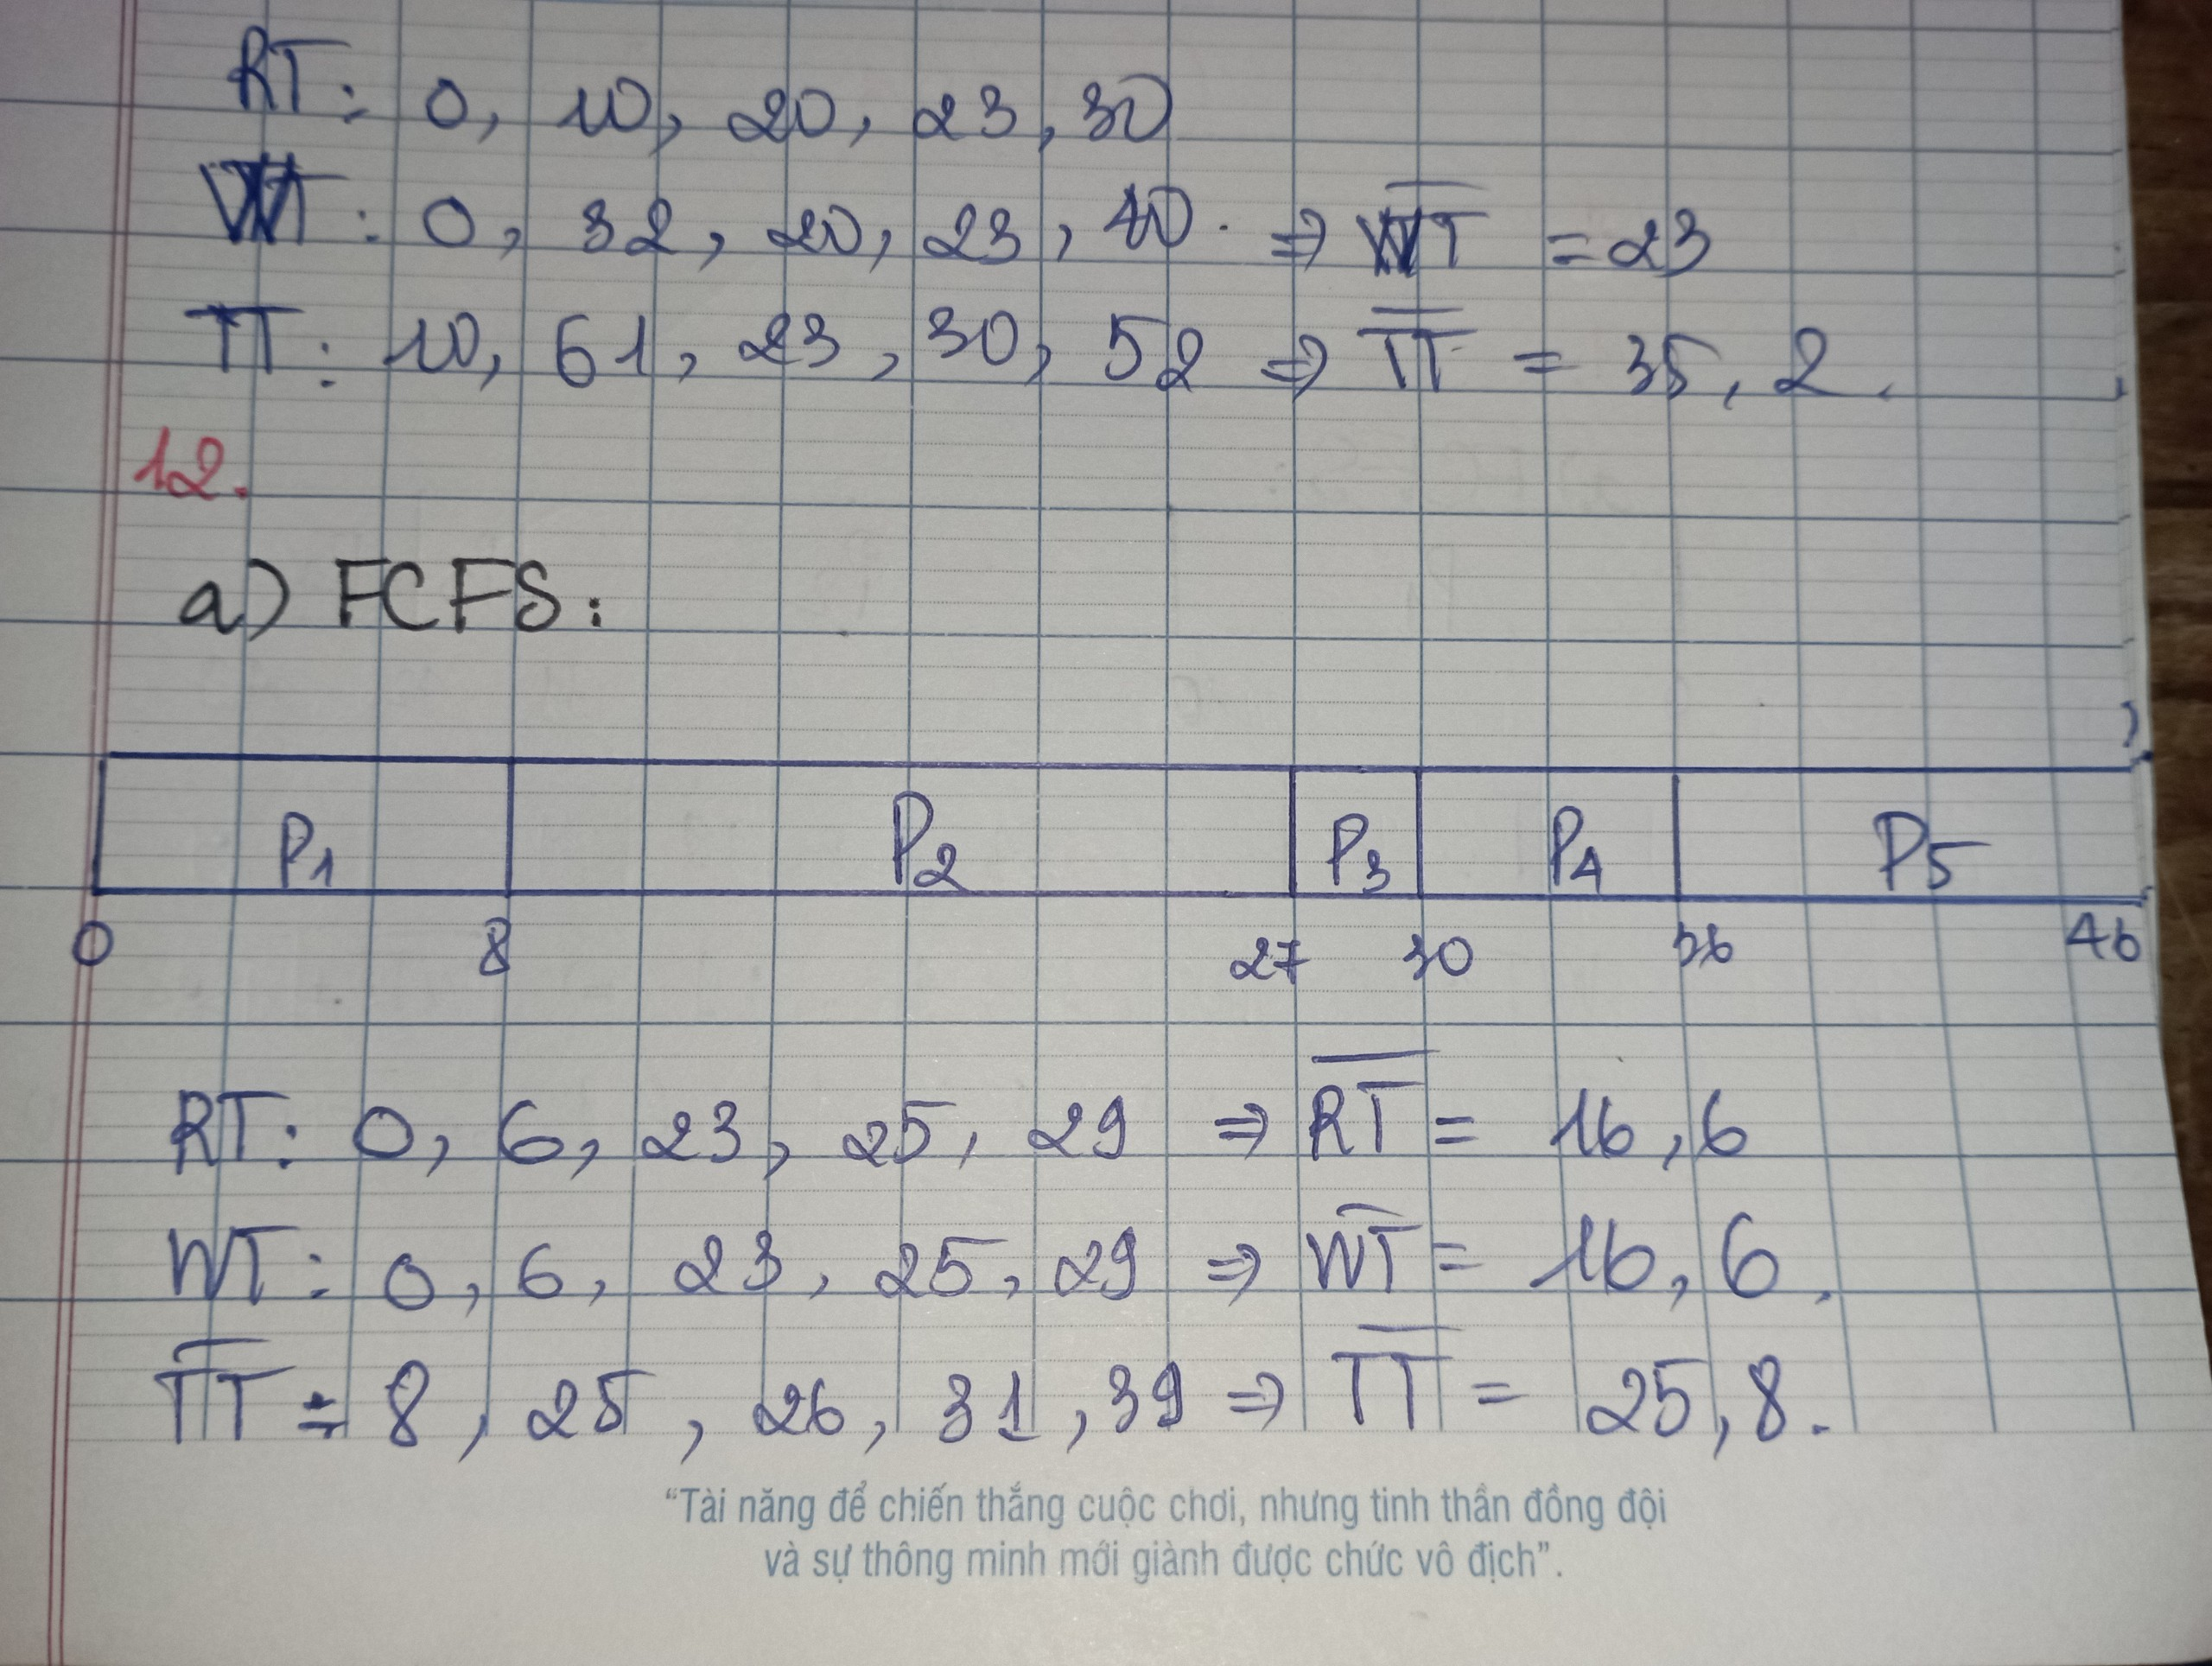 RT: 0, 10, 20, 23, 30
WT: 0, 32, 20, 23, 40. => WT = 23
TT: 10, 61, 23, 30, 52 => TT = 35,2.
12.
a) FCFS:
P1 P2 P3 P4 P5
0 8 27 30 36 46
RT: 0, 6, 23, 25, 29 => RT = 16,6
WT: 0, 6, 23, 25, 29 => WT = 16,6.
TT = 8, 25, 26, 31, 39 => TT = 25,8.
“Tài năng để chiến thắng cuộc chơi, nhưng tinh thần đồng đội
và sự thông minh mới giành được chức vô địch”.